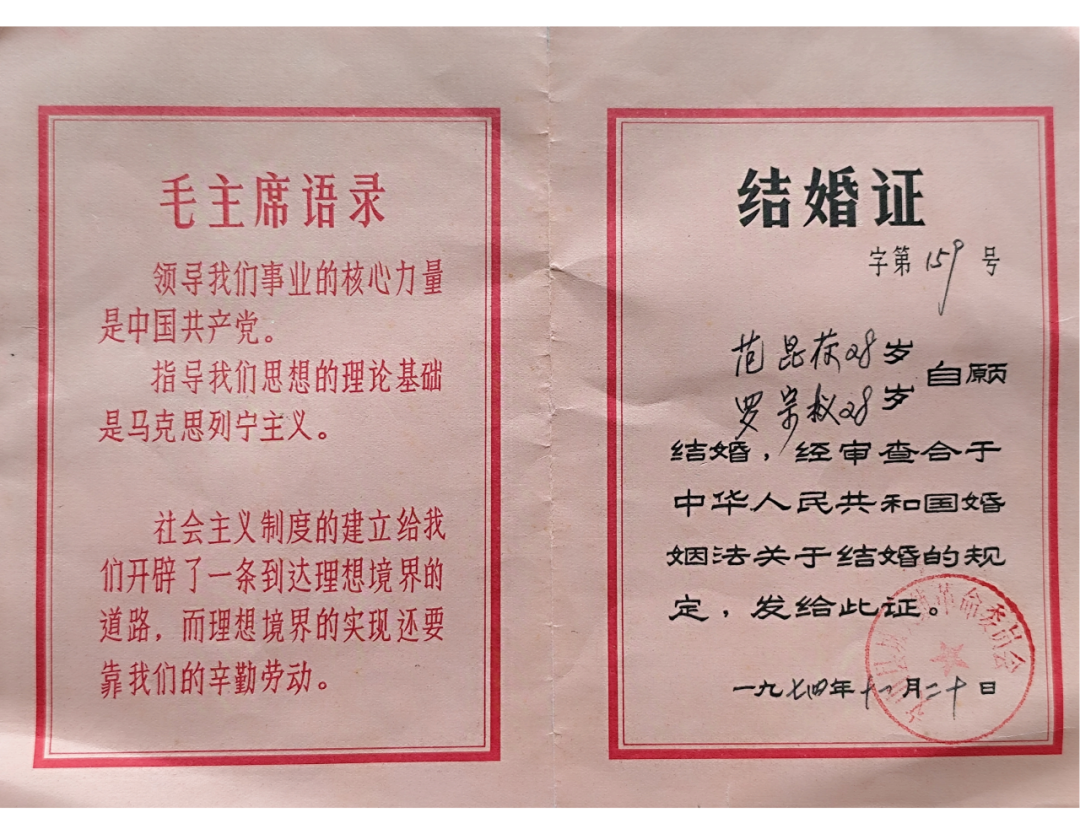 毛主席语录
领导我们事业的核心力量
是中国共产党。
指导我们思想的理论基础
是马克思列宁主义。
社会主义制度的建立给我
们开辟了一条到达理想境界的
道路，而理想境界的实现还要
靠我们的辛勤劳动。
结婚证
字第159号
范昆 28岁
罗宗权28岁
自愿
结婚，经审查合于
中华人民共和国婚
姻法关于结婚的规
定，发给此证。
革命委员会
一九七四年十一月二十日